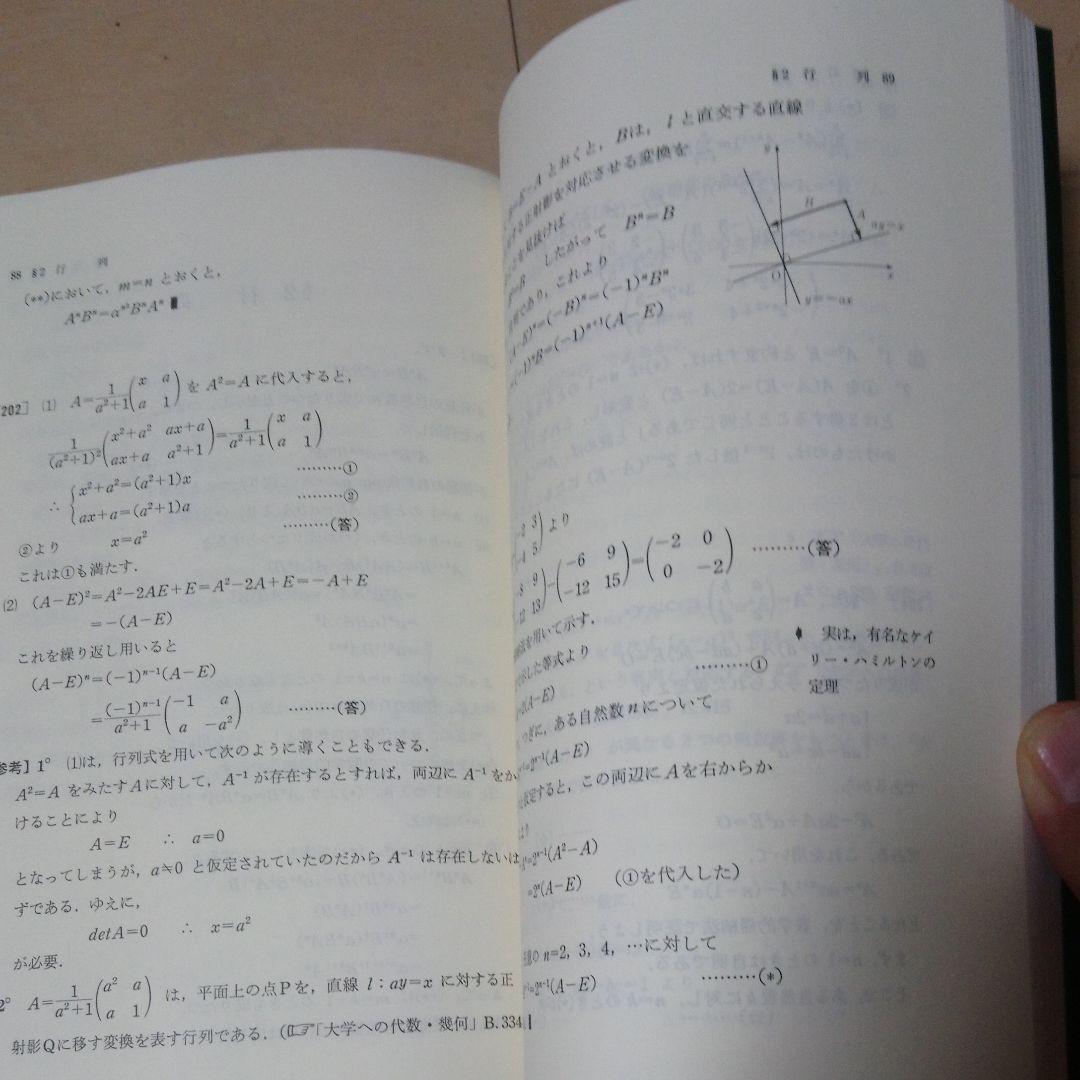 88 §2 行 列
(**)において，m=n とおくと，
AⁿBⁿ=α^{n²}BⁿAⁿ ▮
202] (1) A=\frac{1}{a²+1}\begin{pmatrix}x & a\\a & 1\end{pmatrix} を A²=A に代入すると，
\frac{1}{(a²+1)²}\begin{pmatrix}x²+a² & ax+a\\ax+a & a²+1\end{pmatrix}=\frac{1}{a²+1}\begin{pmatrix}x & a\\a & 1\end{pmatrix}
∴ {x²+a²=(a²+1)x ………①
ax+a=(a²+1)a ………②
②より x=a² ………(答)
これは①も満たす．
(2) (A−E)²=A²−2AE+E=A²−2A+E=−A+E
=−(A−E)
これを繰り返し用いると
(A−E)ⁿ=(−1)ⁿ⁻¹(A−E)
=\frac{(−1)ⁿ⁻¹}{a²+1}\begin{pmatrix}−1 & a\\a & −a²\end{pmatrix} ………(答)
参考] 1° (1)は，行列式を用いて次のように導くこともできる．
A²=A をみたすAに対して，A⁻¹ が存在するとすれば，両辺に A⁻¹ をか
けることにより
A=E ∴ a=0
となってしまうが，a≒0 と仮定されていたのだから A⁻¹ は存在しないは
ずである．ゆえに，
detA=0 ∴ x=a²
が必要．
2° A=\frac{1}{a²+1}\begin{pmatrix}a² & a\\a & 1\end{pmatrix} は，平面上の点Pを，直線 l：ay=x に対する正
射影Qに移す変換を表す行列である．(☞「大学への代数・幾何」B.334
§2 行 列 89
B=E−A とおくと，Bは，l と直交する直線
する正射影を対応させる変換を
を見抜けば
=B したがって Bⁿ=B
であり，これより
(A−E)ⁿ=(−B)ⁿ=(−1)ⁿBⁿ
=(−1)ⁿB=(−1)ⁿ⁺¹(A−E)
y
B
A
ay=x
O
x
y=−ax
−2 3
−4 5
より
−8 9
−12 13
−\begin{pmatrix}−6 & 9\\−12 & 15\end{pmatrix}=\begin{pmatrix}−2 & 0\\0 & −2\end{pmatrix} ………(答)
を用いて示す．
した等式より
=2(A−E) ………①
実は，有名なケイ
リー・ハミルトンの
定理
つぎに，ある自然数nについて
=2ⁿ⁻¹(A−E)
仮定すると，この両辺にAを右からか
より
=2ⁿ⁻¹(A²−A)
=2ⁿ(A−E) (①を代入した)
の n=2, 3, 4, …に対して
=2ⁿ⁻¹(A−E) ………(*)